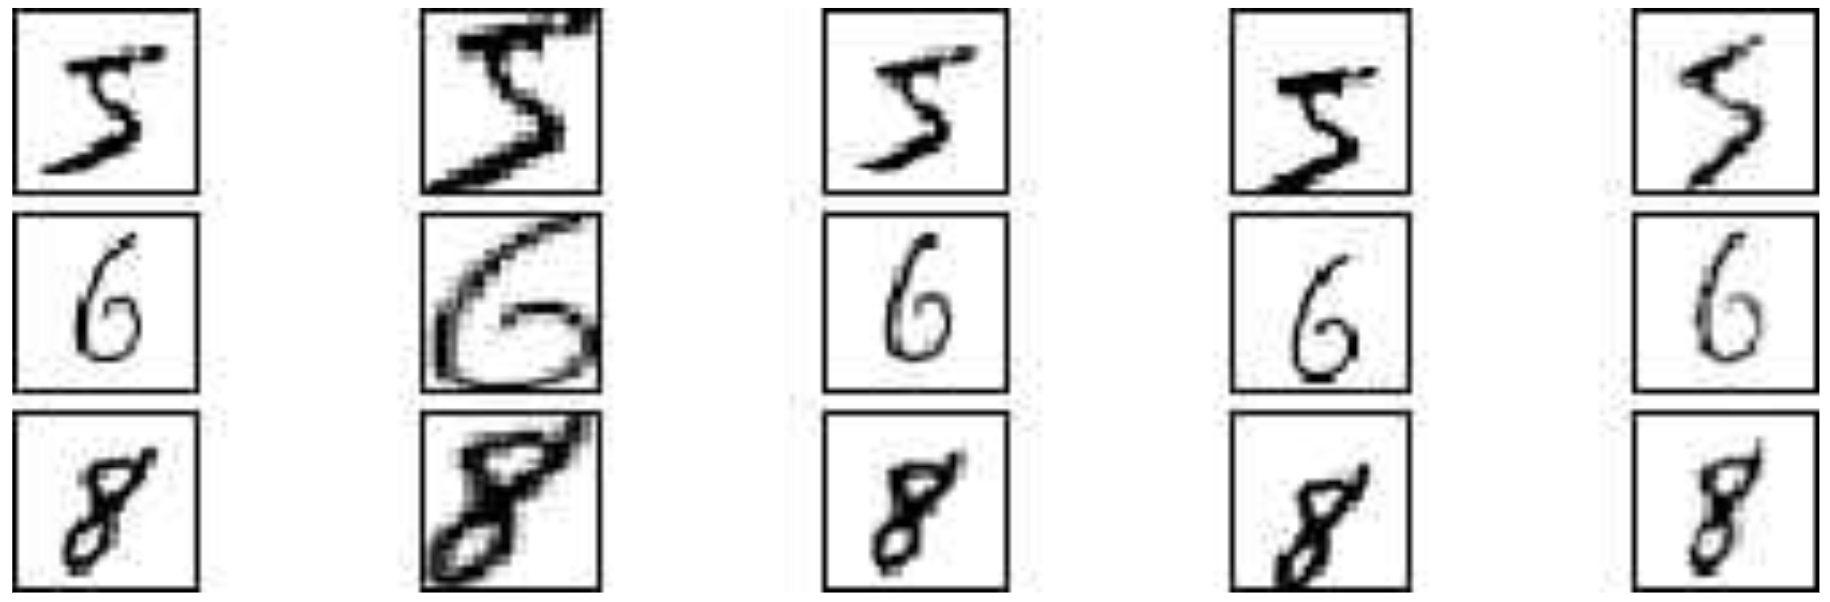 5 5 5 5 5
6 6 6 6 6
8 8 8 8 8